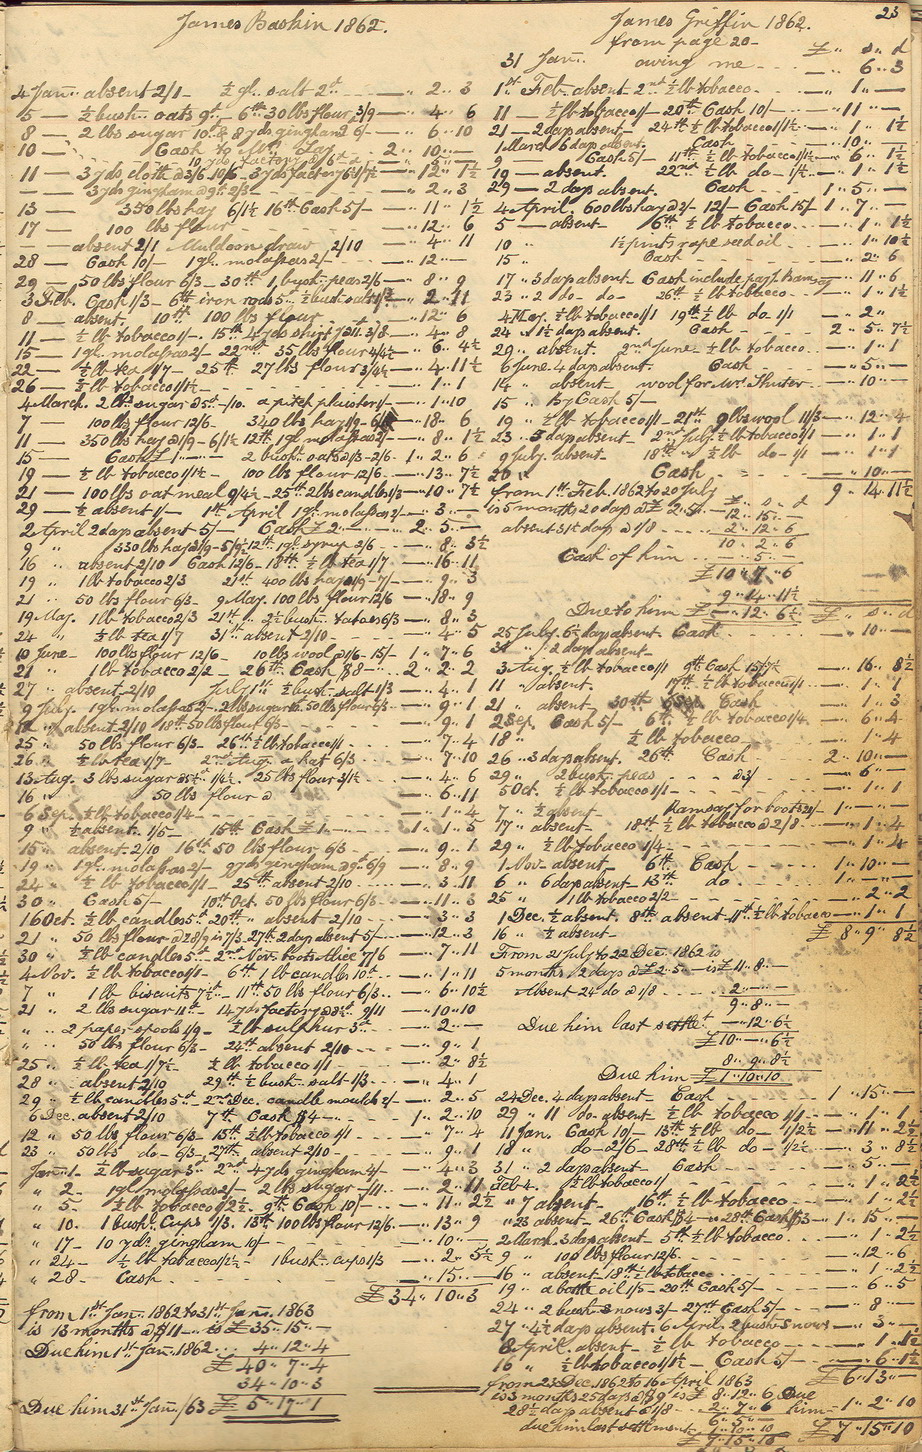 23
James Baskin 1862.
4 Jan. absent 2/1 - ½ gl. salt 2d - " 2 " 3
5 - ½ bush. oats 9d - 6th 30 lbs flour 3/9 - " 4 " 6
8 - 2 lbs sugar 10d & 8 yds gingham 6/ - " 6 " 10
10 - Cash to Wm. 2 " 10 "
10 yds factory
11 - 3 yds cloth 3/6 10/6 - 3 yds factory - " 12 " 1½
- 3 yds gingham 9d 2/3 - " 2 " 3
13 - 350 lbs hay 6/1½ 16th Cash 5/ - " 11 " 1½
17 - 100 lbs flour - " 12 " 6
- absent 2/1 Muldoon draw 2/10 - " 4 " 11
28 - Cash 10/ - 1 gl. molasses 2/ - " 12 "
29 - 50 lbs flour 6/3 - 30th 1 bush. peas 2/6 - " 8 " 9
3 Feb. Cash 1/3 - 6th iron rods 5 - ½ bush. salt - " 2 " 11
8 - absent. 10th 100 lbs flour - " 12 " 6
11 - ½ lb tobacco 1/ - 15th 4 yds shirtg 11 3/8 - " 4 " 8
15 1 gl. molasses 2/ - 22nd 35 lbs flour 4/4½ - " 6 " 4½
22 - ½ lb tea 1/7 - 25th 27 lbs flour 3/4½ - " 4 " 11½
26 - ½ lb tobacco 1/1½ - " 1 " 1
4 March. 2 lbs sugar 5d - /10. a pitch plaister 1/ - " 1 " 10
7 100 lbs flour 12/6 - 340 lbs hay 1/9 - 6/ - " 18 " 6
11 - 350 lbs hay 1/9 - 6/1½ 12th 1 gl. molasses 2/ - " 8 " 1½
15 - Cash £1 - 2 bush. oats 1/3 - 2/6 - 1 " 2 " 6
19 - ½ lb tobacco 1/1½ - 100 lbs flour 12/6 - " 13 " 7½
21 - 100 lbs oat meal 9/4½ - 25th 2 lbs candles 1/3 - " 10 " 7½
29 - ½ absent 1/ - 1st April 1 gl. molasses 2/ - " 3 "
2 April 2 days absent 5/ - Cash £2 - 2 " 5 "
9 " 330 lbs hay 1/9 - 5/9½ 12th 1 gl. syrup 2/6 - " 8 " 3½
16 " absent 2/10 Cash 12/6 - 18th ½ lb tea 1/7 - " 16 " 11
19 " 1 lb tobacco 2/3 21st 400 lbs hay 1/9 - 7/ - " 9 " 3
21 " 50 lbs flour 6/3 - 9 May. 100 lbs flour 12/6 - " 18 " 9
19 May. 1 lb tobacco 2/3 21st 2½ bush. tatoes 6/3 - " 8 " 3
24 " ½ lb tea 1/7 31st absent 2/10 - " 4 " 5
10 June - 100 lbs flour 12/6 - 10 lbs wool 1/6 - 15/ - 1 " 7 " 6
21 " 1 lb tobacco 2/2 - 26th Cash $8 - 2 " 2 " 2
27 " absent 2/10 July 1st ½ bush. salt 1/3 - " 4 " 1
9 July. 1 gl. molasses 2/ - 2 lbs sugar 50 lbs flour 6/3 - " 9 " 1
12 " absent 2/10 18th 50 lbs flour 6/3 - " 9 " 1
25 " 50 lbs flour 6/3 - 26th ½ lb tobacco 1/1 - " 7 " 4
26 " ½ lb tea 1/7 - 2nd Aug. a hat 6/3 - " 7 " 10
13 Aug. 3 lbs sugar 5½d 1/4½ - 25 lbs flour 3/1½ - " 4 " 6
16 " 50 lbs flour - " 6 " 11
6 Sep. ½ lb tobacco 1/4 - " 1 " 4
9 " ½ absent. 1/5 - 15th Cash £1 - 1 " 1 " 5
15 " absent 2/10 16th 50 lbs flour 6/3 - " 9 " 1
19 " 1 gl. molasses 2/ - 9 yds gingham 9d 6/9 - " 8 " 9
24 " ½ lb tobacco 1/1 - 25th absent 2/10 - " 3 " 11
30 " Cash 5/ - 10th Oct. 50 lbs flour 6/3 - " 11 " 3
16 Oct. ½ lb candles 5d 20th " absent 2/10 - " 3 " 3
21 " 50 lbs flour 28/9 is 7/3 - 27th 2 days absent 5/ - " 12 " 3
30 " ½ lb candles 5d - 2nd Nov. boots thee 7/6 - " 7 " 11
4 Nov. ½ lb tobacco 1/1 - 6th 1 lb candles 10d - " 1 " 11
7 " 1 lb biscuits 7½d - 11th 50 lbs flour 6/3 - " 6 " 10½
21 " 2 lbs sugar 11d - 14 yds factory 8½d 9/11 - " 10 " 10
" " 2 paper spools 1/9 - ½ lb sulphur 3d - " 2 "
" " 50 lbs flour 6/3 - 24th absent 2/10 - " 9 " 1
25 " ½ lb tea 1/7½ - ½ lb tobacco 1/1 - " 2 " 8½
28 " absent 2/10 29th ½ bush. salt 1/3 - " 4 " 1
29 " ½ lb candles 5d - 2nd Dec. candle moulds 2/ - " 2 " 5
6 Dec. absent 2/10 7th Cash $4 - 1 " 2 " 10
12 " 50 lbs flour 6/3 - 15th ½ lb tobacco 1/1 - " 7 " 4
23 " 50 lbs do - 6/3 27th absent 2/10 - " 9 " 1
Jan. 1 - ½ lb sugar 3d 2nd 4 yds gingham 4/ - " 4 " 3
" 2 - 1 gl. molasses 2/ - 2 lbs sugar - /11 - " 2 " 11
" 5 - ½ lb tobacco 1/2½ - 9th Cash 10/ - " 11 " 2½
" 10. 1 bush. Cups 1/3. 13th 100 lbs flour 12/6 - " 13 " 9
" 17 - 10 yds gingham 10/ - " 10 "
" 24 - ½ lb tobacco 1/2½ - 1 bush. cups 1/3 - " 2 " 5½
" 28 - Cash - " 15 "
£ 34 " 10 " 3
from 1st Jan. 1862 to 31st Jan. 1863
is 13 months @ $11 - is £35 " 15 "
Due him 1st Jan. 1862 - 4 " 12 " 4
£ 40 " 7 " 4
34 " 10 " 3
Due him 31st Jan. /63 £ 5 " 17 " 1
James Griffin 1862.
from page 20 -
£ " s " d
31 Jan. owing me - " 6 " 3
1st Feb. absent 2nd ½ lb tobacco - " 1 "
11 ½ lb tobacco 1/ - 20th Cash 10/ - " 11 "
21 - 2 days absent - 24th ½ lb tobacco 1/1½ - " 1 " 1½
1 March 6 days absent. Cash - " 10 "
9 - Cash 5/ - 11th ½ lb tobacco 1/1½ - " 6 " 1½
19 - absent. 22nd ½ lb do - 1/1½ - " 1 " 1½
29 - 2 days absent. Cash - 1 " 5 "
4 April. 600 lbs hay 2/ - 12/ - Cash 15/ 1 " 7 "
5 - absent - 6th ½ lb tobacco - " 1 " 1½
10 " 1½ pints rape seed oil - " 1 " 10½
15 " Cash - " 2 " 6
17 " 3 days absent - Cash include payt. Ramsay - " 11 " 6
23 " 2 do - do - 26th ½ lb tobacco - " 1 " 1½
4 May. ½ lb tobacco 1/1 19th ½ lb do 1/1 - " 2 "
24 " 1½ days absent. Cash - 2 " 5 " 7½
29 " absent. 2nd June - ½ lb tobacco - " 1 " 1
6 June. 4 days absent. Cash - " 5 "
14 " absent wool for Mr. Hunter - " 10 "
15 " By Cash 5/ -
19 " ½ lb tobacco 1/1 - 21st 9 lbs wool 11/3 - " 12 " 4
23 " 5 days absent 2nd July. ½ lb tobacco 1/1 - " 1 " 1
9 July. absent - 18th ½ lb do - 1/1 - " 1 " 1
20 " Cash - " 10 "
9 " 14 " 11½
from 1st Feb. 1862 to 20 July
is 5 months 20 days @ £2 " 5 " - 12 " 15 "
absent 31st day @ 1/8 - 2 " 12 " 6
10 " 2 " 6
Cash of him - " 5 "
£ 10 " 7 " 6
9 " 14 " 11½
Due to him £ - " 12 " 6½ £ " s " d
25 July. 6½ days absent - Cash - " 10 "
31 " 2 days absent -
3 Aug. ½ lb tobacco 1/1 9th Cash 15/7½ - " 16 " 8½
11 " absent. 19th ½ lb tobacco 1/1 - " 1 " 1
21 " absent 30th Cash - " 1 " 3
2 Sep. Cash 5/ - 6th ½ lb tobacco 1/4 - " 6 " 4
18 " ½ lb tobacco - " 1 " 4
26 " 3 days absent. 26th Cash - 2 " 10 "
29 " 2 bush. peas @ 3/ - " 6 "
5 Oct. ½ lb tobacco 1/1 - " 1 " 1
7 " ½ absent Ramsay for boots 20/ - 1 " - "
17 " absent - 18th ½ lb tobacco @ 2/8 - " 1 " 4
29 " ½ lb tobacco 1/4 - " 1 " 4
1 Nov. absent - 6th Cash - 1 " 10 "
6 " 6 days absent - 13th do - 1 " - "
25 " 1 lb tobacco 2/2 - " 2 " 2
1 Dec. ½ absent. 8th absent - 11th ½ lb tobacco - " 1 " 1
16 " ½ absent - £ 8 " 9 " 8½
From 21 July to 22 Dec. 1862 is
5 months 2 days @ £2 " 5 " - is £ 11 " 8 "
Absent 24 do @ 1/8 - 2 " - "
9 " 8 "
Due him last settlet. - " 12 " 6½
£ 10 " - " 6½
8 " 9 " 8½
Due him £ 1 " 10 " 10
24 Dec. 4 days absent - Cash - 1 " 15 "
29 " 11 do - absent - ½ lb tobacco 1/1 - " 1 " 1
11 Jan. Cash 10/ - 13th ½ lb do - 1/2½ - " 11 " 2½
18 " do - 2/6 - 28th ½ lb do - 1/2½ - " 3 " 8½
31 " 2 days absent - Cash - " 5 "
Feb 4. ½ lb tobacco 1/ - " 1 " 2½
" 7 absent - 16th ½ lb tobacco - " 1 " 2½
" 23 absent - 26th Cash $4 - " 28th Cash $3 - 1 " 15 "
2 March. 3 days absent - 5th ½ lb tobacco - " 1 " 2½
9 " 100 lbs flour 12/6 - " 12 " 6
16 " absent - 18th ½ lb tobacco - " 1 " 2½
19 " a bottle oil 1/5 - 20th Cash 5/ - " 6 " 5
24 " 2 bush. snows 3/ - 27th Cash 5/ - " 8 "
27 " 4½ days absent. 6 April. 2 bush. snows - " 3 "
8 April. absent - ½ lb tobacco - " 1 " 1½
16 " ½ lb tobacco 1/1½ - Cash 5/ - " 6 " 1½
£ 6 " 13 "
from 23 Dec. 1862 to 16 April 1863
is 3 months 25 days @ $9 is £ 8 " 12 " 6 Due
28½ days absent @ 1/8 - 2 " 7 " 6 him - 1 " 2 " 10
6 " 5 "
due him last settlement £ 7 " 15 " 10
£ 7 " 15 " 10